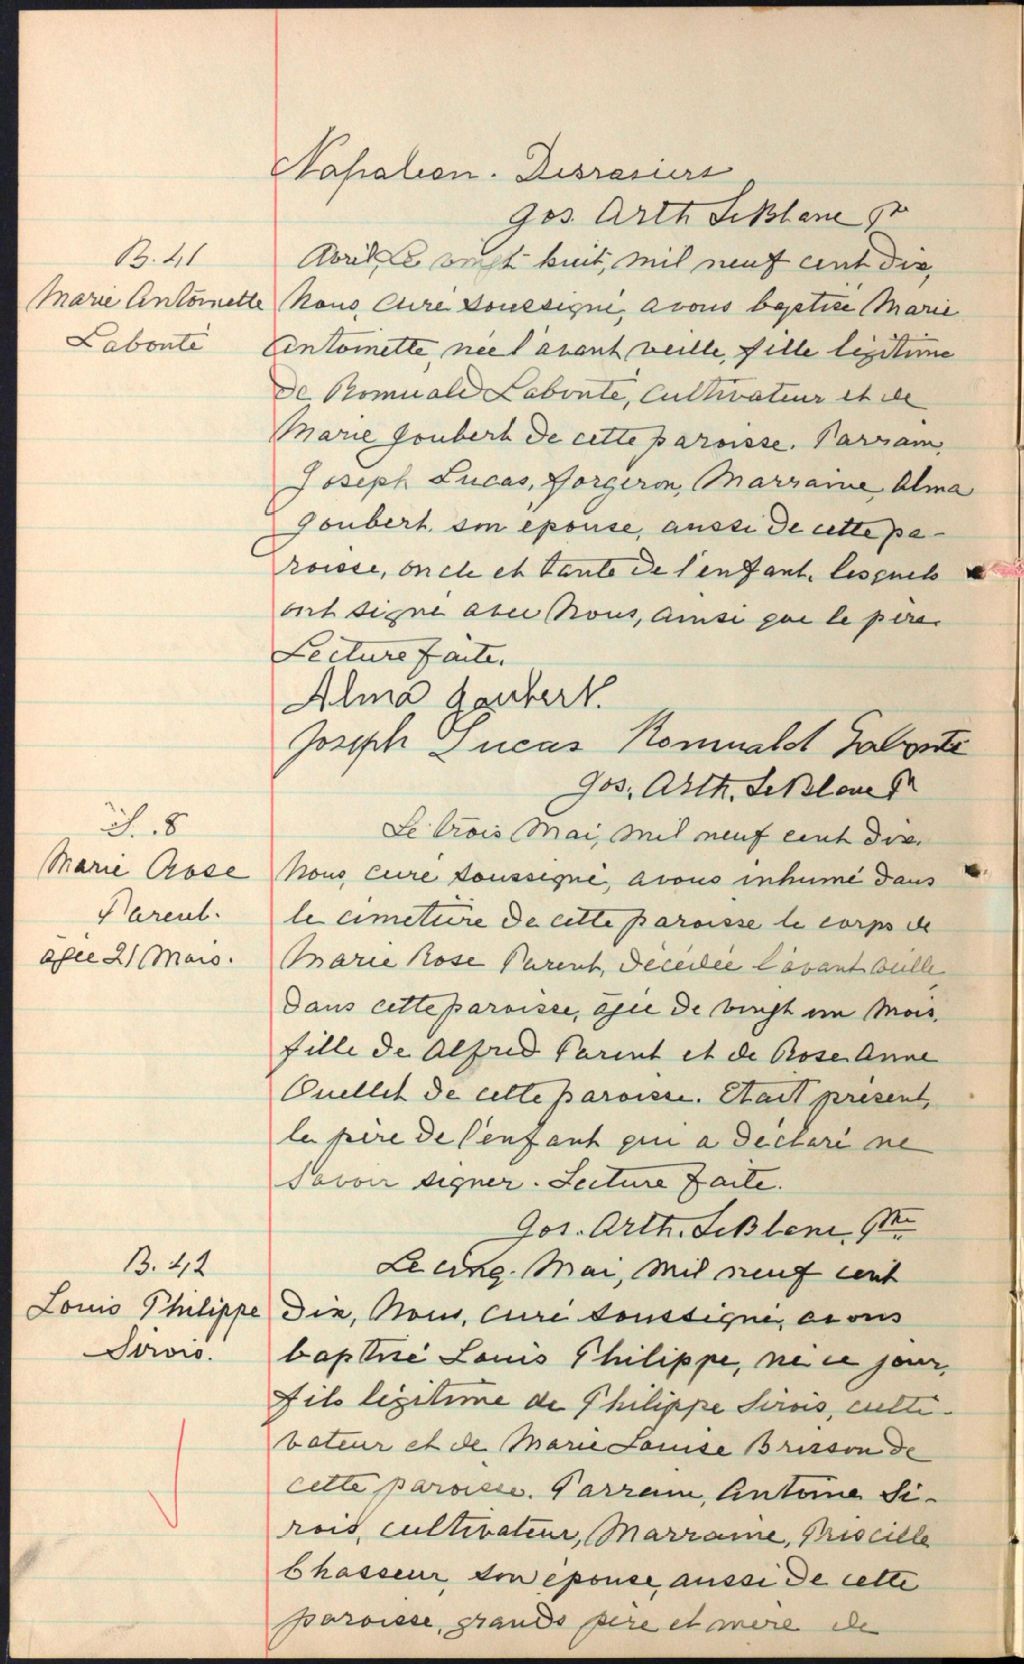 Napoleon. Desrosiers
Jos. Arth LeBlanc Ptre
B. 41
Marie Antoinette
Labonté
Avril, Le vingt huit, mil neuf cent dix,
Nous, curé soussigné, avons baptisé Marie
Antoinette, née l'avant veille, fille légitime
de Romuald Labonté, cultivateur et de
Marie Joubert de cette paroisse. Parrain,
Joseph Lucas, forgeron, Marraine, Alma
Joubert son épouse, aussi de cette pa-
roisse, oncle et tante de l'enfant, lesquels
ont signé avec Nous, ainsi que le père.
Lecture faite.
Alma Joubert.
Joseph Lucas Romuald Labonté
Jos. Arth. LeBlanc Ptr
S. 8
Marie Rose
Parent.
âgée 21 Mois.
Le trois Mai, mil neuf cent dix.
Nous, curé soussigné, avons inhumé dans
le cimetière de cette paroisse le corps de
Marie Rose Parent, décédée l'avant veille
dans cette paroisse, âgée de vingt un mois,
fille de Alfred Parent et de Rose Anne
Ouellet de cette paroisse. Etait présent,
le père de l'enfant qui a déclaré ne
savoir signer. Lecture faite.
Jos. Arth. LeBlanc, Ptre
B. 42
Louis Philippe
Sirois.
Le cinq. Mai, mil neuf cent
dix, Nous, curé soussigné, avons
baptisé Louis Philippe, né ce jour,
fils légitime de Philippe Sirois, culti-
vateur et de Marie Louise Brisson de
cette paroisse. Parrain, Antoine Si-
rois, cultivateur, Marraine, Priscille
Chasseur, son épouse, aussi de cette
paroisse, grands père et mère de